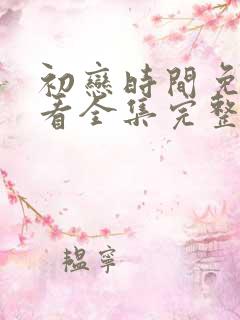 初戀時間免
看全集完整
韞寧